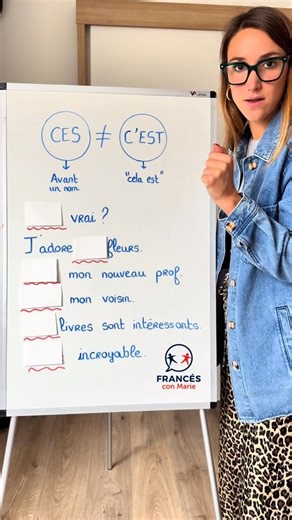 CES ≠ C'EST
Avant un nom
"cela est"
vrai ?
J'adore fleurs.
mon nouveau prof.
mon voisin.
livres sont intéressants.
incroyable.
FRANCÉS
con Marie